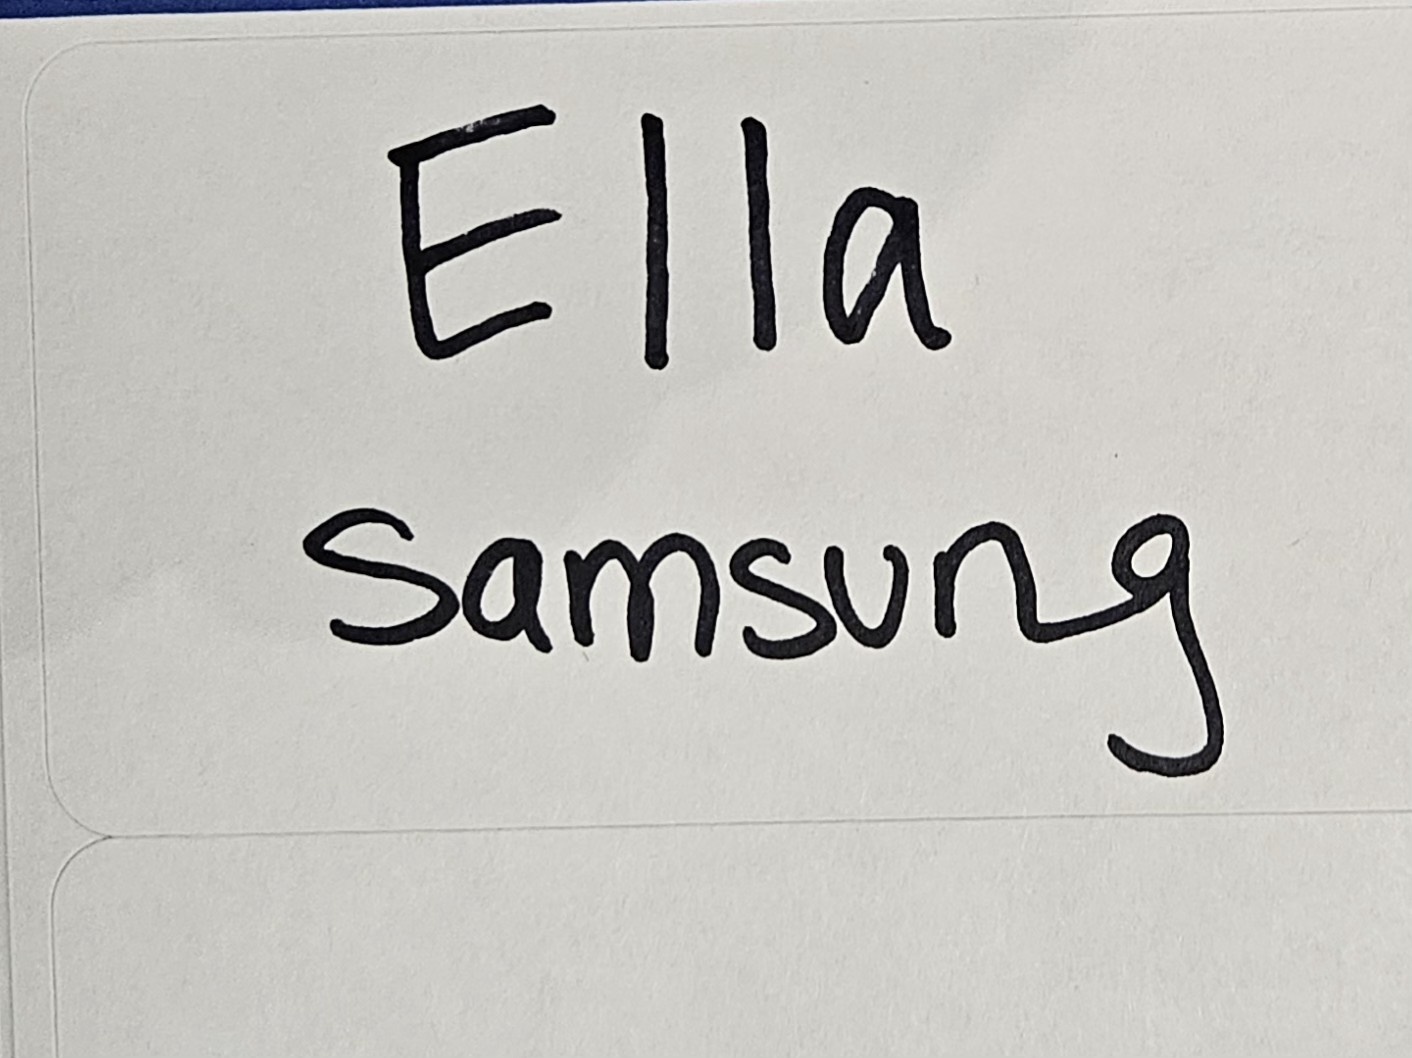 Ella
Samsung